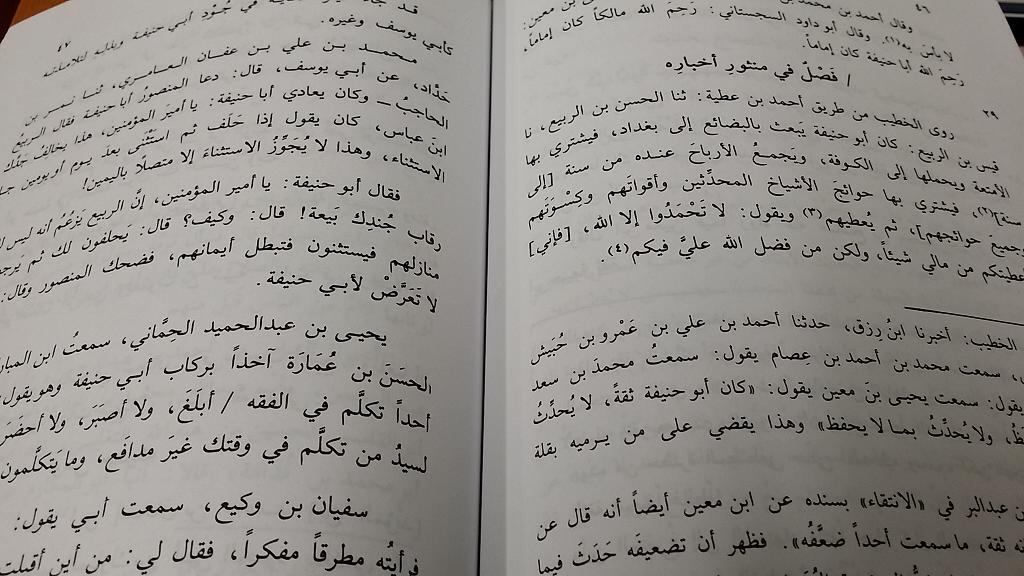 ٤٦
وقال أحمد بن محمد بن
بن معين:
لا بأس به(١). وقال أبو داود السجستاني: رَحِمَ الله مالكاً كان إماماً،
رَحِمَ الله أبا حنيفة كان إماماً.
/ فَصْلٌ في منثورِ أخبارِه
٢٩
روى الخطيب من طريق أحمد بن عطية: ثنا الحسن بن الربيع، نا
قيس بن الربيع: كان أبو حنيفة يَبعث بالبضائع إلى بغداد، فيشتري بها
الأمتعة ويحملها إلى الكوفة، ويَجمعُ الأرباحَ عنده من سنة [إلى
سنة](٢)، فيشتري بها حوائج الأشياخ المحدِّثين وأقواتَهم وكسْوَتَهم
وجميعَ حوائجهم]، ثم يُعطيهم(٣) ويقول: لا تَحْمَدُوا إلا الله، [فإني]
أعطيتكم من مالي شيئاً، ولكن من فضل الله عليَّ فيكم(٤).
الخطيب: أخبرنا ابنُ رِزق، حدثنا أحمد بن علي بن عَمْرو بن حُبَيش
سمعت محمد بن أحمد بن عِصام يقول: سمعتُ محمدَ بن سعد
يقول: سمعت يحيى بنَ معين يقول: «كان أبو حنيفة ثقةً، لا يُحدِّثُ
ولا يُحدِّثُ بما لا يحفظ» وهذا يقضي على من يرميه بقلة
بن عبدالبر في «الانتقاء» بسنده عن ابن معين أيضاً أنه قال عن
ثقة، ما سمعت أحداً ضعَّفُه». فظهر أن تضعيفَه حَدَثَ فيما
٤٧
في جُودِ أبي حنيفة وبذله لتلامذته
كأبي يوسف وغيره.
محمد بن علي بن عفان العامري، ثنا نمر بن
حدَّاد، عن أبي يوسف، قال: دعا المنصورُ أبا حنيفة فقال الربيع
الحاجبُ – وكان يعادي أبا حنيفة: يا أمير المؤمنين، هذا يخالِفُ جدَّك
ابنَ عباس، كان يقول إذا حَلَف ثم استَثنى بعدَ يوم أو يومين
الاستثناء، وهذا لا يُجَوِّزُ الاستثناءَ إلا متصلًا باليمين!
فقال أبو حنيفة: يا أمير المؤمنين، إنَّ الربيع يَزعُمُ أنه ليس
رقاب جُندِك بَيعة! قال: وكيف؟ قال: يَحلفون لك ثم
منازلهم فيستثنون فتبطل أيمانهم، فضحك المنصور وقال:
لا تَعَرَّضْ لأبي حنيفة.
يحيى بن عبدالحميد الحِمَّاني، سمعتُ ابن
الحسَنَ بن عُمَارَة آخذاً بركاب أبي حنيفة وهو يقول:
أحداً تكلَّم في الفقه / أبلَغَ، ولا أصبَرَ، ولا أحضَرَ
لسيدُ من تكلَّم في وقتك غيرَ مدافَع، وما يَتكلَّمون
سفيان بن وكيع، سمعت أبي يقول:
فرأيتُه مطرقاً مفكراً، فقال لي: من أين أقبلت